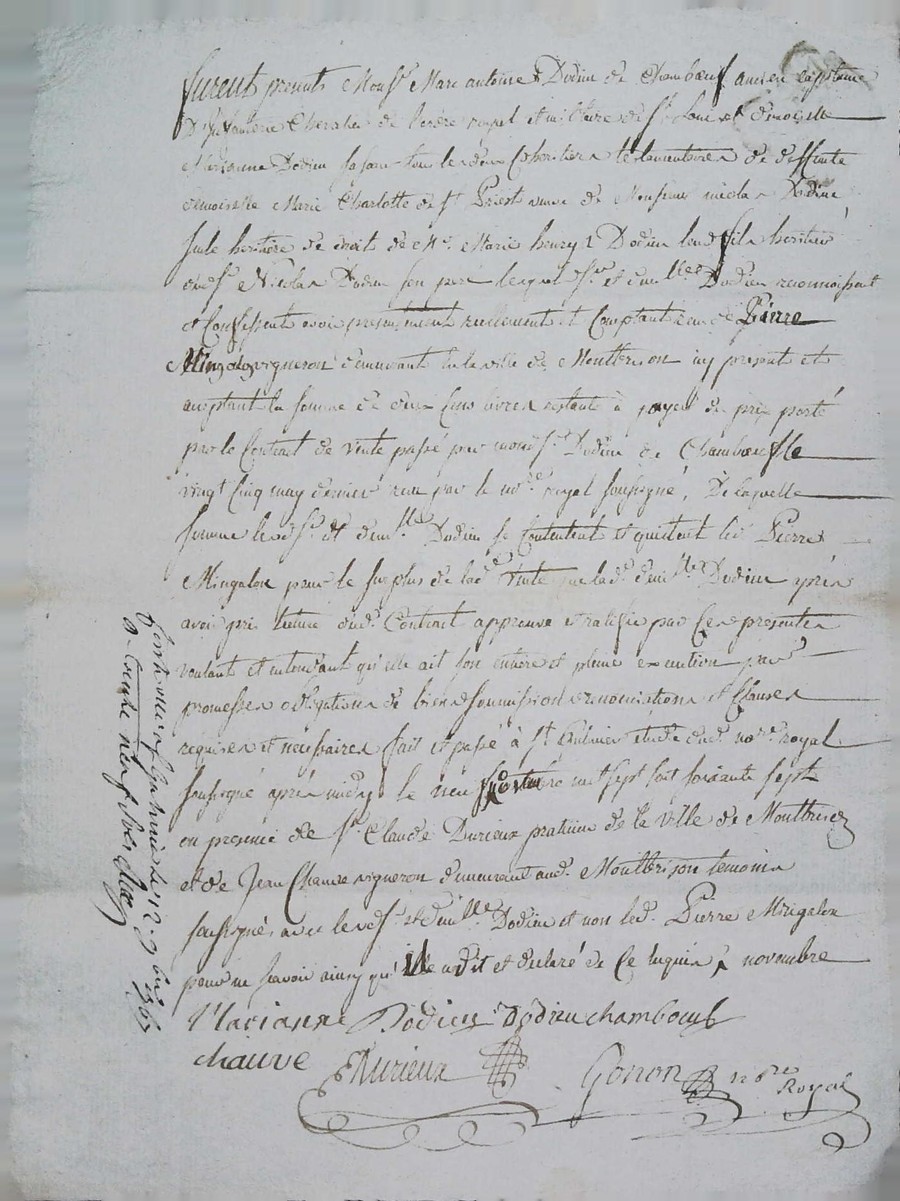 furent présents Mons.r Marc antoine Dodieu de Chambœuf ancien capitaine
D'infanterie Chevalier de l'ordre royal et militaire de St. Louis et demoiselle
Marianne Dodieu sa sœur tous les deux Coheritiers testamentaires de deffunte
demoiselle Marie Charlotte de St. Priest veuve de Monsieur nicolas Dodieu
seule heritiere de droit de Mr. Marie henry Dodieu leur fils heritier
dud. Sr. Nicolas Dodieu son pere lesquels Srs. et dem.lle Dodieu reconnoissent
et Confessent avoir presentement reellement et Comptant reçu de Pierre
Mingalon vigneron demeurant en la ville de Montbrison icy present et
acceptant la somme de deux Cens livres restante à payer du prix porté
par le Contract de vente passé par mond. Sr. Dodieu de Chambœuf le
vingt Cinq may dernier reçu par le no.re royal soussigné, De laquelle
somme lesd. Sr. et dem.lle Dodieu se Contentent et quittent led. Pierre
Mingalon pour le surplus de lad. vente que lad. dem.lle Dodieu après
avoir pris lecture dud. Contract appreuve et ratiffie par Ces presentes
voulant et entendant qu'elle ait son entiere et pleine execution par
promesses obligations de biens soumissions renonciations et Clauses
requises et nécessaires fait et passé à St. Galmier etude dud. no.re royal
soussigné après midy le neuf mil sept cent soixante sept
en presence de Sr. Claude Durieux praticien de la ville de Montbrison
et de Jean Chauve vigneron demeurant aud. Montbrison temoins
soussignés avec lesd. Sr. et dem.lle Dodieu et non led. Pierre Mingalon
pour ne savoir ainsy qu'il a dit et declaré de Ce enquis, novembre
Marianne Dodieu Dodieu chambœuf
chauve Durieux Gonon no.re
Royal
à St. Galmier le 12. 9.bre 1767
neuf sols